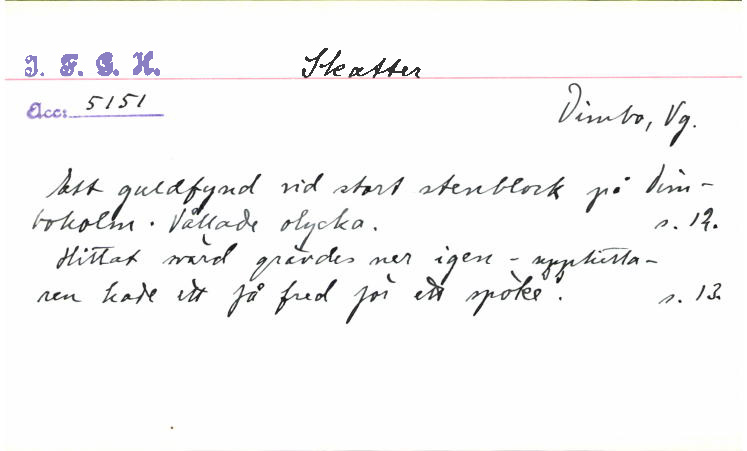 I. F. G. H. Skatter
Acc: 5151
Dimbo, Vg.
Ett guldfynd vid stort stenblock på Dim-
boholm. Vållade olycka. s. 12.
Hittat svärd grävdes ner igen - upphitta-
ren hade ett få fred för ett spöke. s. 13.